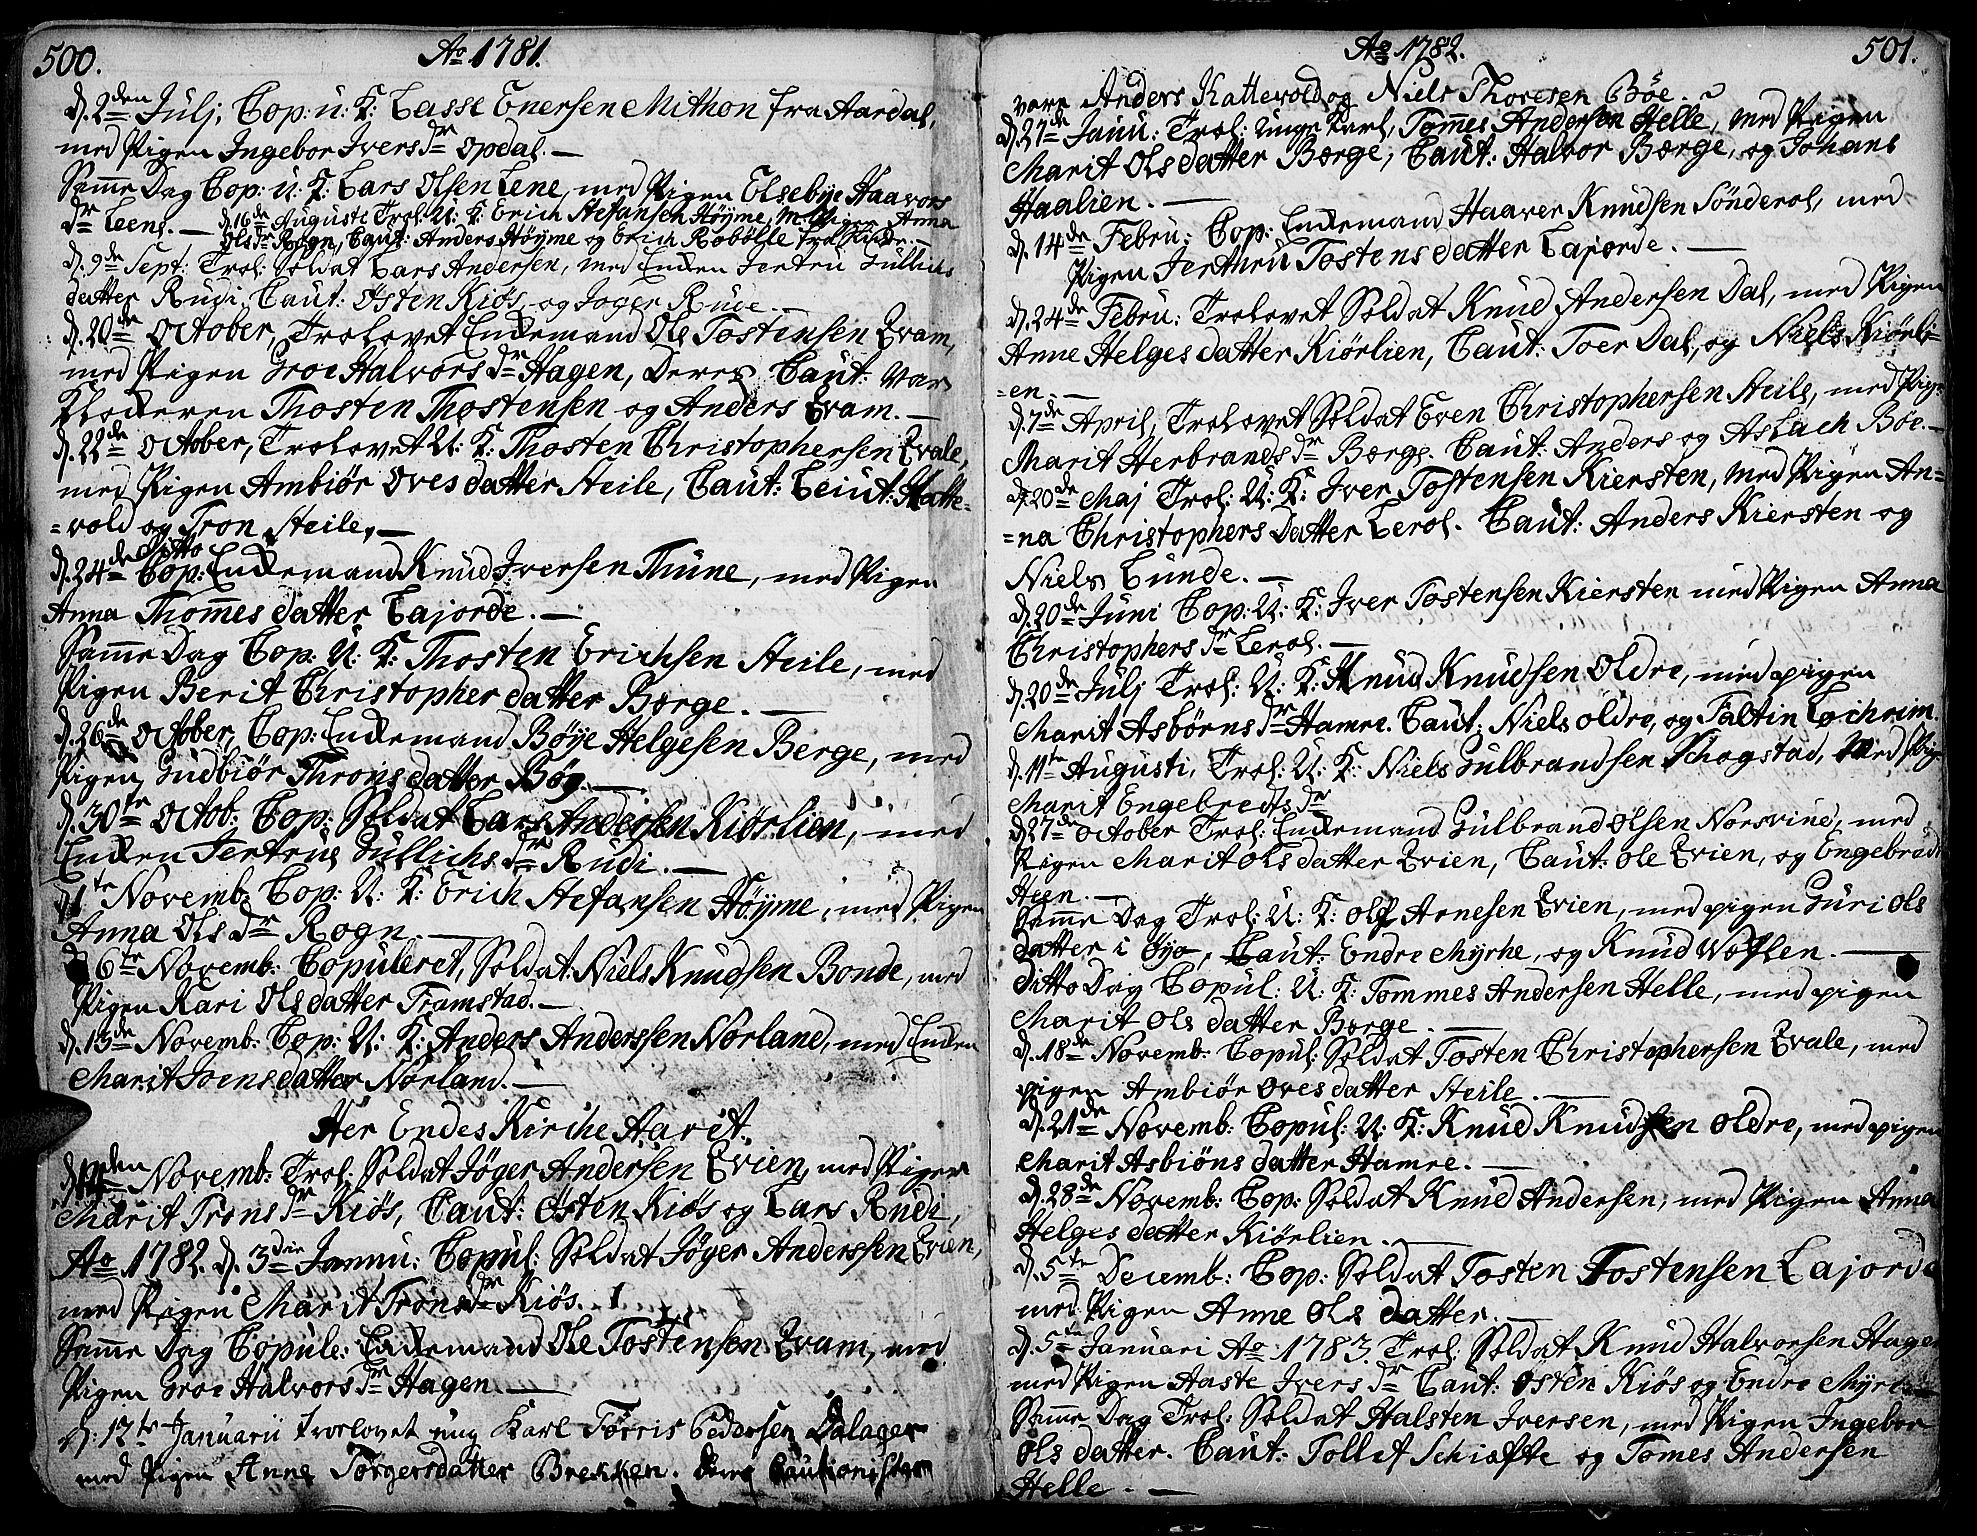 500. Ao 1781.
d. 2den Julj, Cop: u: K: Lasse Enersen Mithon fra Aardal,
med Pigen Ingebor Ivers dr Opdal. —
Samme Dag Cop: u: K: Lars Olsen Lene, med Pigen Elsebye Haavors
dr Leens. — d. 16de Auguste Trol. U: K: Erich Stefansen Høyme, m. Pigen Anna
Ols dr Rogn, Caut: Anders Høyme og Erich Robølle
d. 9de Sept: Trol: Soldat Lars Andersen, med Enken Jertru Gullichs
datter Rudi, Caut: Østen Kiøs, og Joger Rude —
d. 20de October, Trolovet Enkemand Ole Tostensen Qvam,
med Pigen Groe Halvors dr Hagen, Deres Caut: var
Klockeren Thosten Thostensen og Anders Qvam. —
d. 22de October, Trolovet U: K: Thosten Christophersen Qvale,
med Pigen Ambiør Oves datter Steile, Caut: Leiut: Katte-
=vold og Tron Steile, —
d. 24de Ditto Cop: Enkemand Knud Iversen Thune, med Pigen
Anna Thommes datter Lajorde. —
Samme Dag Cop: U: K: Thosten Erichsen Steile, med
Pigen Berit Christopher datter Børge. —
d. 26de October, Cop: Enkemand Bøye Helgesen Berge, med
Pigen Gudbiør Throns datter Bøy. —
d. 30te Octob: Cop: Soldat Lars Andersen Kiørlien, med
Enken Jertrue Gullichs dr Rudi. —
d. 1te Novemb: Cop: U: K: Erich Stefansen Høyme, med Pigen
Anna Ols dr Rogn. —
d. 6te Novemb: Copuleret, Soldat Niels Knudsen Bonde, med
Pigen Kari Ols datter Framstad. —
d. 13de Novemb: Cop: U: K: Anders Anderssen Nørland, med Enken
Marit Joens datter Nørland. —
Her Endes Kirche Aarit.
Novemb: Trol: Soldat Jøger Andersen Qvien, med Pigen
Marit Trons dr Kiøs, Caut: Østen Kiøs og Lars Rudi,
Ao 1782. d. 3die Jannu: Copul: Soldat Jøger Anderssen Qvien,
med Pigen Marit Trons dr Kiøs.
Samme Dag Copule: Enkemand Ole Tostensen Qvam, med
Pigen Groe Halvors dr Hagen. —
d: 12te Januarii trorlovet ung Karl Torris Pedersen Dalager
med Pigen Anne Torgersdatter Brekken. deres Cautionister
Ao 1782. 501.
vare Anders Kattevold og Niels Thoresen Bøe.
d. 27de Janu: Trol: unge Karl, Tommes Andersen Helle, med Pigen
Marit Ols datter Børge, Caut: Halvor Børge, og Johans
Haalien. —
d. 14de Febru: Cop: Enkemand Haaver Knudsen Sønderol, med
Pigen Jerthru Tostens datter Lajorde. —
d. 24de Febru: Trolovet Soldat Knud Andersen Dal, med Pigen
Anne Helges datter Kiørlien, Caut: Toer Dal, og Niels Kiørli-
=en. —
d. 7de April, Trolovet Soldat Even Christophersen Steile, med Pig:
Marit Herbrands dr Børge. Caut: Anders og Aslach Bøe. —
d. 20de Maj Trol: U: K: Iver Tostensen Kiersten, med Pigen An=
=na Christophers datter Lerol. Caut: Anders Kiersten og
Niels Lunde. —
d. 20de Juni Cop: U: K: Iver Tostensen Kiersten med Pigen Anna
Christophers dr Lerol. —
d. 20de Julj Trol: U: K: Knud Knudsen Oldre, med pigen
Marit Asbørns dr Hamre. Caut: Niels Oldre, og Faltin Lochreim.
d. 11te Augusti, Trol: U: K: Niels Gulbrandsen Schogstad, med Pig:
Marit Engebredts dr
d. 27de October Trol: Enkemand Gulbrand Olsen Norsvine, med
Pigen Marit Ols datter Qvien, Caut: Ole Qvien, og Engebrødt
Heen. —
Samme Dag Trol: U: K: Olle Arnesen Qvien, med pigen Guri Ols
datter i Øye, Caut: Endre Myrhe, og Knud Wøllen. —
Ditto Dag Copul: U: K: Tommes Andersen Helle, med pigen
Marit Ols datter Børge. —
d. 18de Novemb: Copul: Soldat Tosten Christophersen Qvale, med
pigen Ambiør Oves datter Steile. —
d. 21de Novemb: Copul: U: K: Knud Knudsen Oldre, med pigen
Marit Asbiøns datter Hamre. —
d. 28de Novemb: Cop: Soldat Knud Andersen, med Pigen Anna
Helges datter Kiørlien. —
d. 5te Decemb: Cop: Soldat Tosten Tostensen Lajorde
med Pigen Anne Ols datter. —
d. 5te Januari Ao 1783. Trol: Soldat Knud Halvorsen Hagen
med Pigen Aaste Ivers dr Caut: Østen Kiøs og Endre Myrhe —
Samme Dag Trol: Soldat Halsten Iversen, med Pigen Ingebor
Ols datter. Caut: Tollef Schiefte og Tomes Andersen
Helle. —